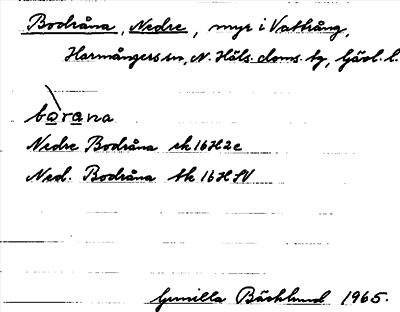 Bodråna, Nedre, myr i Vattrång,
Harmångers sn, N. Häls. doms. tg, Gävl. l.
bo̲ra̲na
Nedre Bodråna ek 16H2e
Ned. Bodråna tk 16H SV
Gunilla Bäcklund 1965.